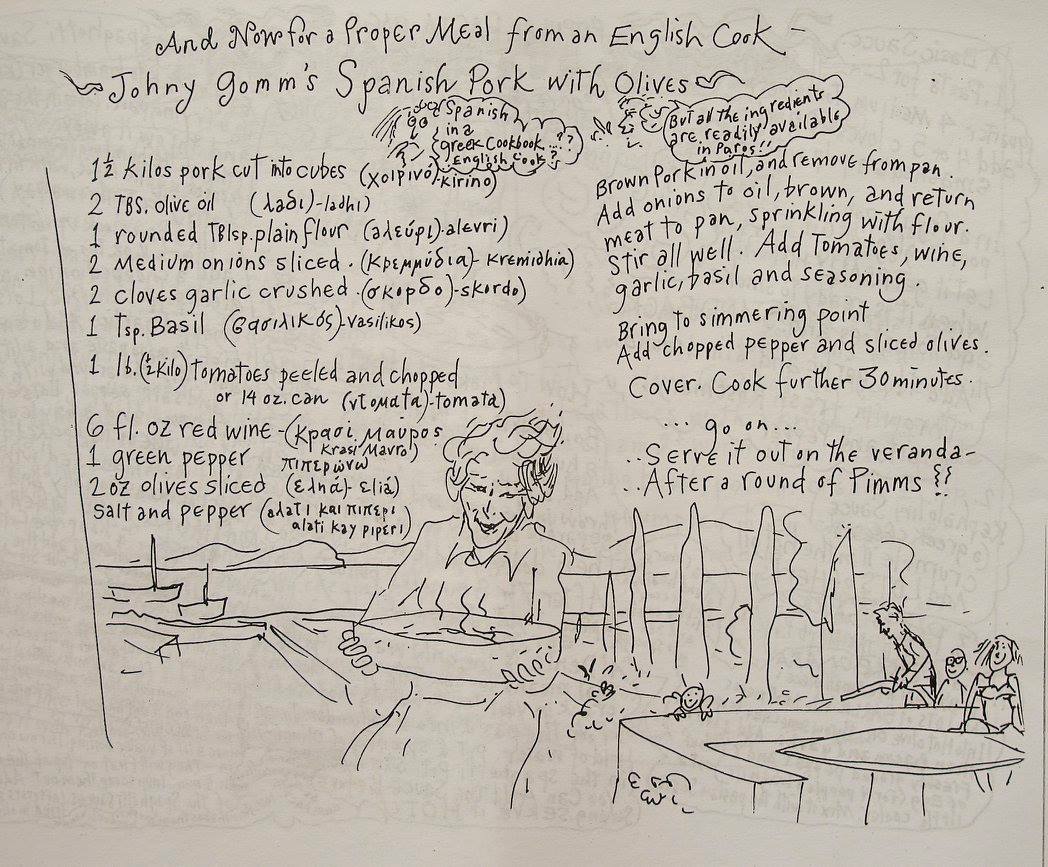 And Now for a Proper Meal from an English Cook -
Johny Gomm's Spanish Pork with Olives
Spanish
in a
greek Cookbook...??
English Cook?
But all the ingredients
are readily available
in Paros!!
1½ Kilos pork cut into cubes (χοιρινό)-kirino
2 TBS. olive oil (λαδι)-ladhi)
1 rounded TBlsp. plain flour (αλεύρι)-alevri)
2 Medium onions sliced. (κρεμμύδια)-kremidhia)
2 cloves garlic crushed. (σκορδο)-skordo)
1 Tsp. Basil (βασιλικός)-vasilikos)
1 lb. (½ kilo) tomatoes peeled and chopped
or 14 oz. can (ντοματα)-tomata)
6 fl. oz red wine -(κρασι μαυρος
krasi Mavro)
1 green pepper
2 oz olives sliced (εληά)-eliá)
Salt and pepper (αλατι και πιπερι
alati kay piperi)
Brown Pork in oil, and remove from pan.
Add onions to oil, brown, and return
meat to pan, sprinkling with flour.
Stir all well. Add Tomatoes, wine,
garlic, basil and seasoning.
Bring to simmering point
Add chopped pepper and sliced olives.
Cover. Cook further 30 minutes.
... go on...
..Serve it out on the veranda-
..After a round of Pimms !!